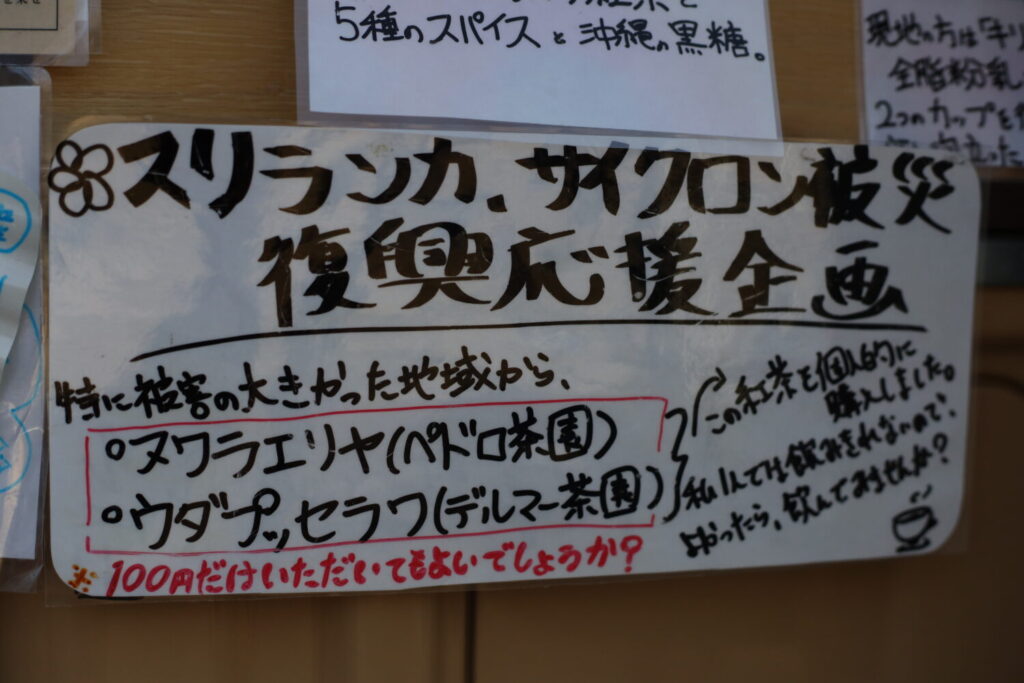 5種のスパイスと沖縄の黒糖。
現地の方は「キリ
全脂粉乳
2つのカップを
スリランカ、サイクロン被災
復興応援企画
特に被害の大きかった地域から、
○ヌワラエリヤ(ペドロ茶園)
○ウダプッセラワ(デルマー茶園)
この紅茶を個人的に
購入しました。
私1人では飲みきれないので、
よかったら、飲んでみませんか?
※100円だけいただいてもよいでしょうか?